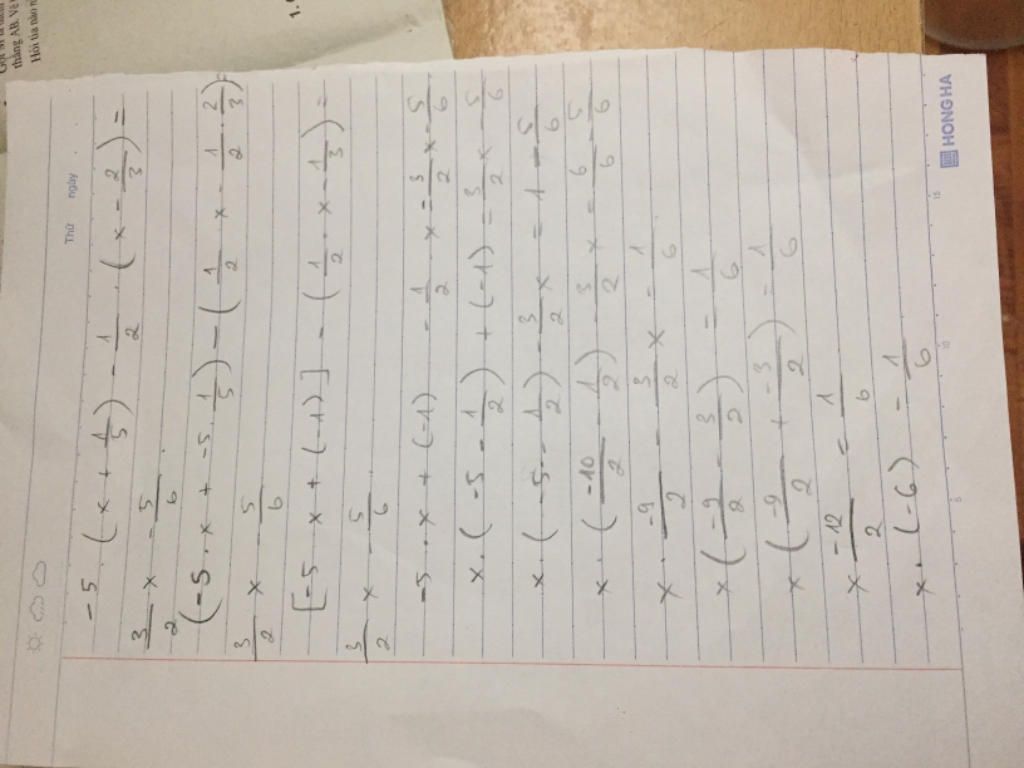 thẳng AB. Vẽ
Hỏi tia nào
1.
Thứ ngày
-5 . (x + 1/5) - 1/2 . (x - 2/3) =
3/2 x - 5/6
(-5 . x + -5 . 1/5) - (1/2 . x - 1/2 . 2/3) =
3/2 x - 5/6
[-5 . x + (-1)] - (1/2 . x - 1/3) =
3/2 x - 5/6
-5 . x + (-1) - 1/2 . x = 3/2 x - 5/6
x . (-5 - 1/2) + (-1) = 3/2 x - 5/6
x . (-5 - 1/2) - 3/2 x = 1 - 5/6
x . (-10/2 - 1/2) - 3/2 x = 6/6 - 5/6
x . -9/2 - 3/2 x - 1/6
x (-9/2 - 3/2) - 1/6
x (-9/2 + -3/2) - 1/6
x -12/2 = 1/6
x . (-6) - 1/6
5 10 15
HONG HA